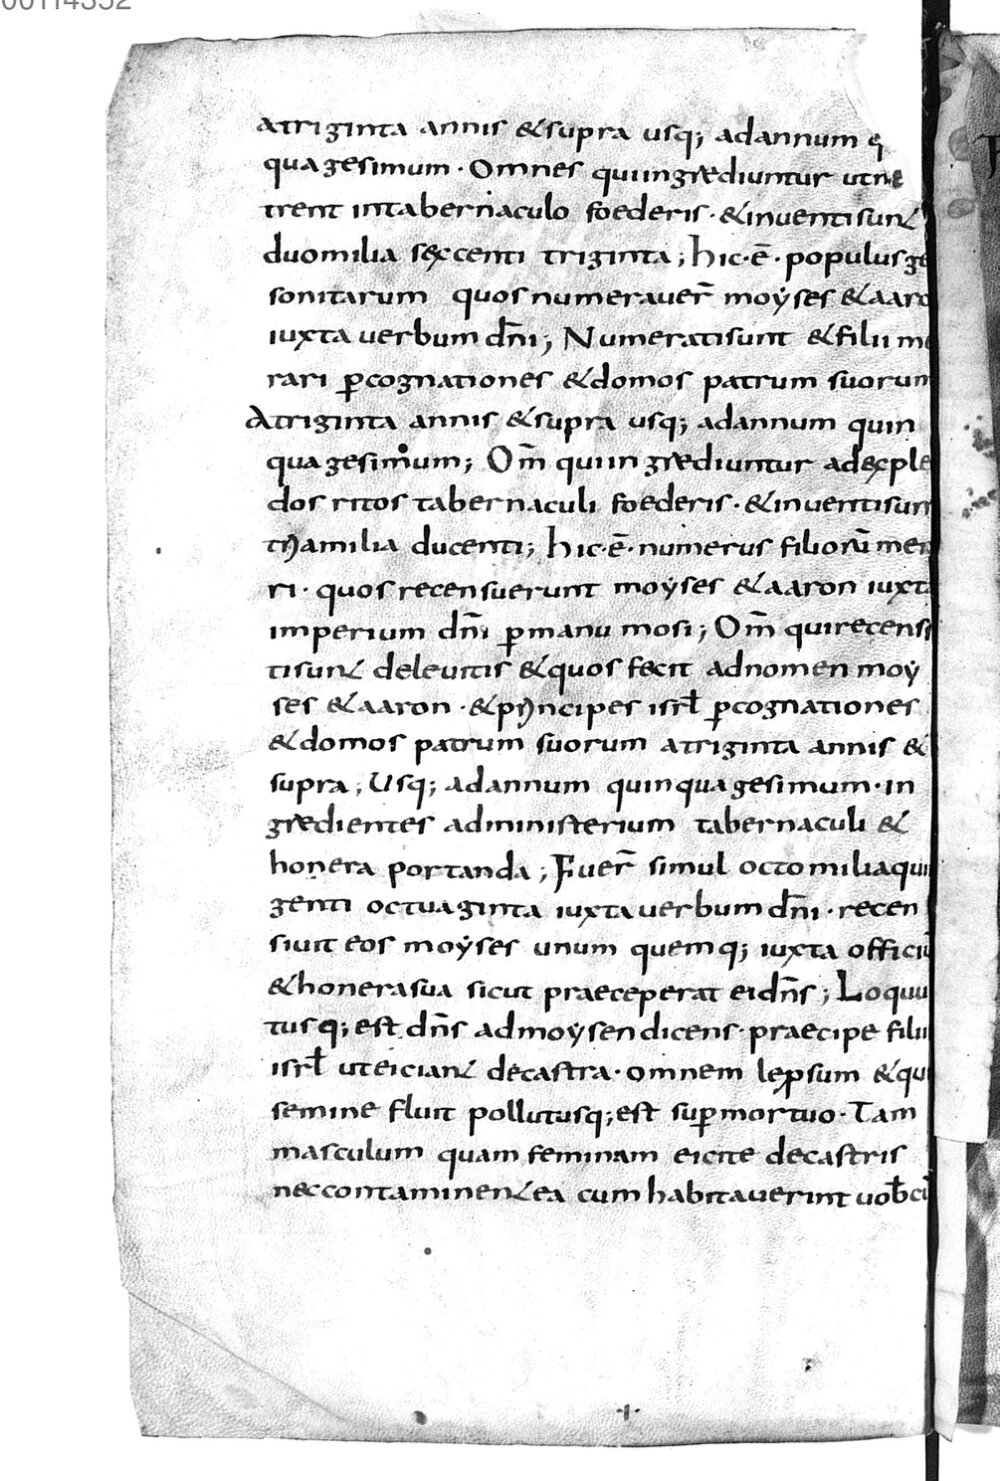 00114352
atriginta annis &supra usq; adannum q
quagesimum · Omnes quiingrediuntur utne
trent intabernaculo foederis · &inuentisunt
duomilia sexcenti triginta; hic · ē · populus ge
sonitarum quos numerauer̄ moẏses &aaro
iuxta uerbum dn̄i; Numeratisunt &filii me
rari ꝑcognationes &domos patrum suorum
Atriginta annis &supra usq; adannum quin
quagesimum; Om̄ quiingrediuntur adexple
dos ritos tabernaculi foederis · &inuentisunt
triamilia ducenti; hic · ē · numerus filiorū mer
ri · quos recensuerunt moẏses &aaron iuxta
imperium dn̄i ꝑmanu mosi; Om̄ quirecensi
tisunt deleuitis &quos fecit adnomen moẏ
ses &aaron · &principes isrł ꝑcognationes
&domos patrum suorum atriginta annis &
supra; Usq; adannum quinquagesimum · in
gredientes administerium tabernaculi &
honera portanda; Fuer̄ simul octomiliaqui
genti octuaginta iuxtauerbum dn̄i · recen
siuit eos moẏses unum quemq; iuxta officiū
&honerasua sicut praeceperat eidn̄s; Loquu
tusq; est dn̄s admoẏsen dicens · praecipe filii
isrł uteiciant decastra · omnem leprosum &qui
semine fluit pollutusq; est suꝑmortuo · Tam
masculum quam feminam eicite decastris
neccontaminentea cum habitauerint uob̄cū